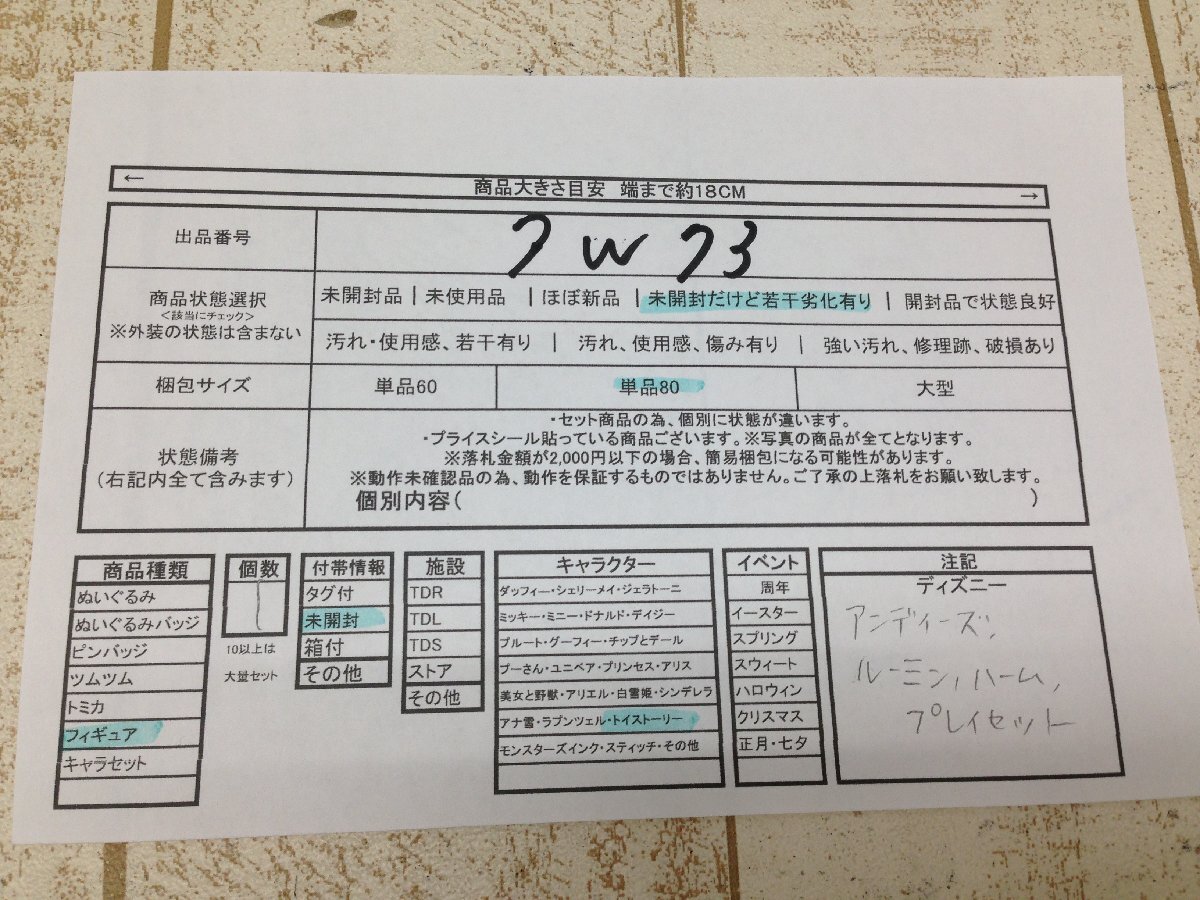 ← 商品大きさ目安 端まで約18CM →
出品番号 7W73
商品状態選択
<該当にチェック>
※外装の状態は含まない
未開封品 | 未使用品 | ほぼ新品 | 未開封だけど若干劣化有り | 開封品で状態良好
汚れ・使用感、若干有り | 汚れ、使用感、傷み有り | 強い汚れ、修理跡、破損あり
梱包サイズ 単品60 単品80 大型
状態備考
(右記内全て含みます)
・セット商品の為、個別に状態が違います。
・プライスシール貼っている商品ございます。※写真の商品が全てとなります。
※落札金額が2,000円以下の場合、簡易梱包になる可能性があります。
※動作未確認品の為、動作を保証するものではありません。ご了承の上落札をお願い致します。
個別内容( )
商品種類
ぬいぐるみ
ぬいぐるみバッジ
ピンバッジ
ツムツム
トミカ
フィギュア
キャラセット
個数
1
10以上は
大量セット
付帯情報
タグ付
未開封
箱付
その他
施設
TDR
TDL
TDS
ストア
その他
キャラクター
ダッフィー・シェリーメイ・ジェラトーニ
ミッキー・ミニー・ドナルド・デイジー
プルート・グーフィー・チップとデール
プーさん・ユニベア・プリンセス・アリス
美女と野獣・アリエル・白雪姫・シンデレラ
アナ雪・ラプンツェル・トイストーリー
モンスターズインク・スティッチ・その他
イベント
周年
イースター
スプリング
スウィート
ハロウィン
クリスマス
正月・七夕
注記
ディズニー
アンディーズ,
ルーミン,ハーム,
プレイセット